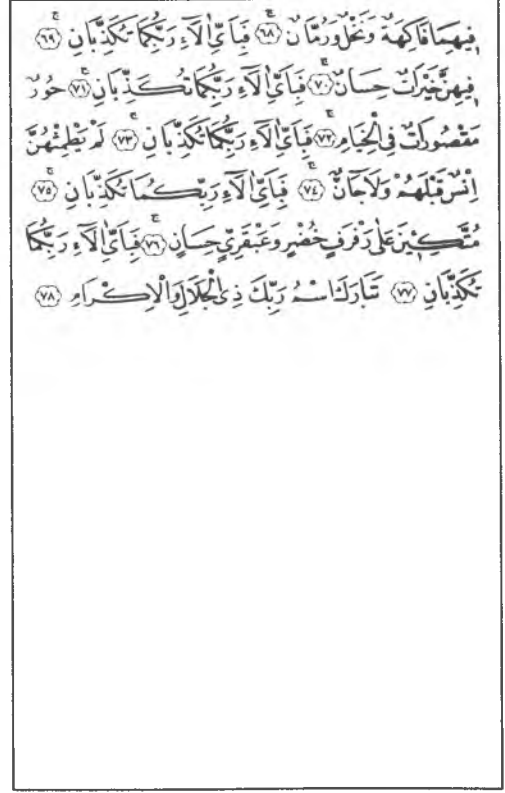 فِيهِمَا فَاكِهَةٌ وَنَخْلٌ وَرُمَّانٌ ۚ ﴿٦٨﴾ فَبِاَيِّ اٰلَٓاءِ رَبِّكُمَا تُكَذِّبَانِ ۚ ﴿٦٩﴾
فِيهِنَّ خَيْرَاتٌ حِسَانٌ ۚ ﴿٧٠﴾ فَبِاَيِّ اٰلَٓاءِ رَبِّكُمَا تُكَذِّبَانِ ۚ ﴿٧١﴾ حُورٌ
مَقْصُورَاتٌ فِي الْخِيَامِ ۚ ﴿٧٢﴾ فَبِاَيِّ اٰلَٓاءِ رَبِّكُمَا تُكَذِّبَانِ ۚ ﴿٧٣﴾ لَمْ يَطْمِثْهُنَّ
اِنْسٌ قَبْلَهُمْ وَلَا جَٓانٌّ ۚ ﴿٧٤﴾ فَبِاَيِّ اٰلَٓاءِ رَبِّكُمَا تُكَذِّبَانِ ۚ ﴿٧٥﴾
مُتَّكِـِٔينَ عَلٰى رَفْرَفٍ خُضْرٍ وَعَبْقَرِيٍّ حِسَانٍ ۚ ﴿٧٦﴾ فَبِاَيِّ اٰلَٓاءِ رَبِّكُمَا
تُكَذِّبَانِ ﴿٧٧﴾ تَبَارَكَ اسْمُ رَبِّكَ ذِي الْجَلَالِ وَالْاِكْرَامِ ﴿٧٨﴾